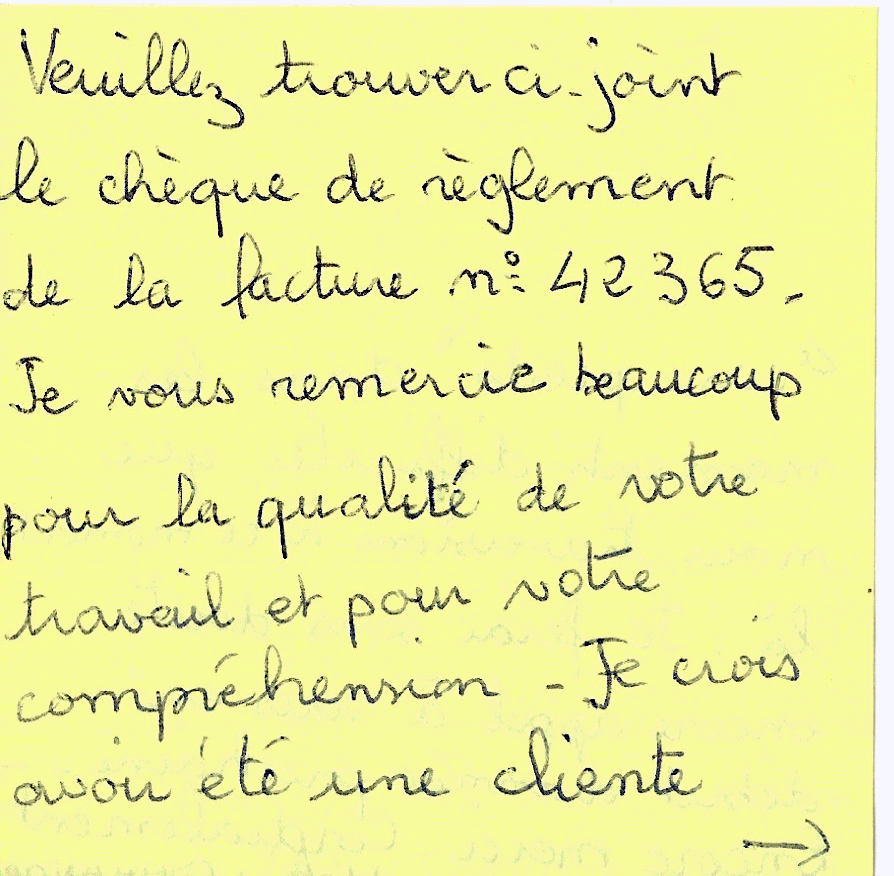 Veuillez trouver ci-joint
le chèque de règlement
de la facture n° 42365.
Je vous remercie beaucoup
pour la qualité de votre
travail et pour votre
compréhension - Je crois
avoir été une cliente
→